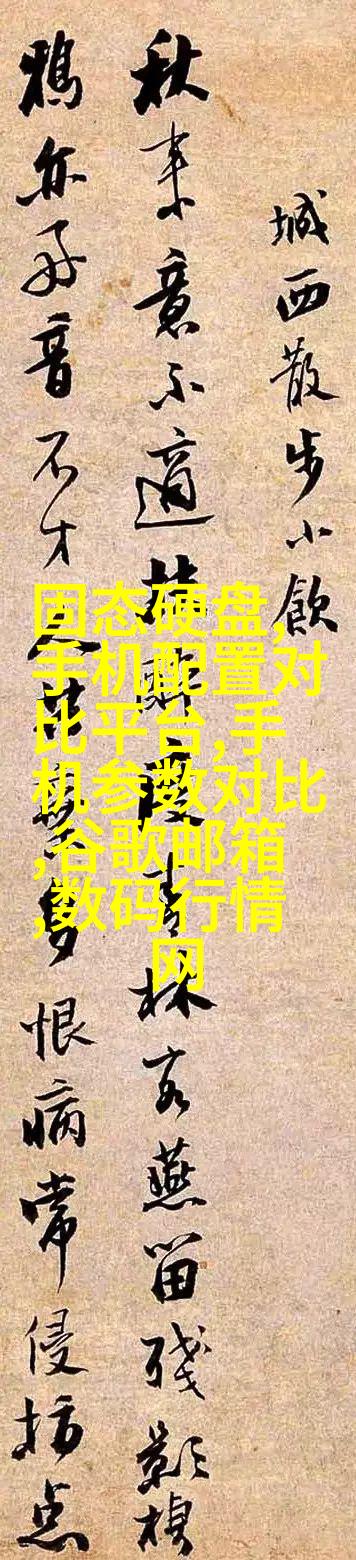 城西散步小飲
秋来意不適度青林客燕留殘影
鴉亦好音不才人恨病常侵点
固态硬盘,
手机配置对
比平台,手
机参数对比
,谷歌邮箱
,数码行情
网